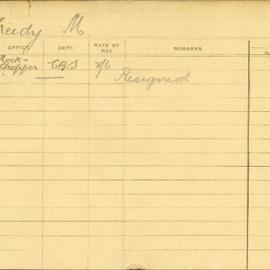 M.
OFFICE DEPT. RATE OF PAY REMARKS
Rock-
chopper C.B.S 8/6
Resigned